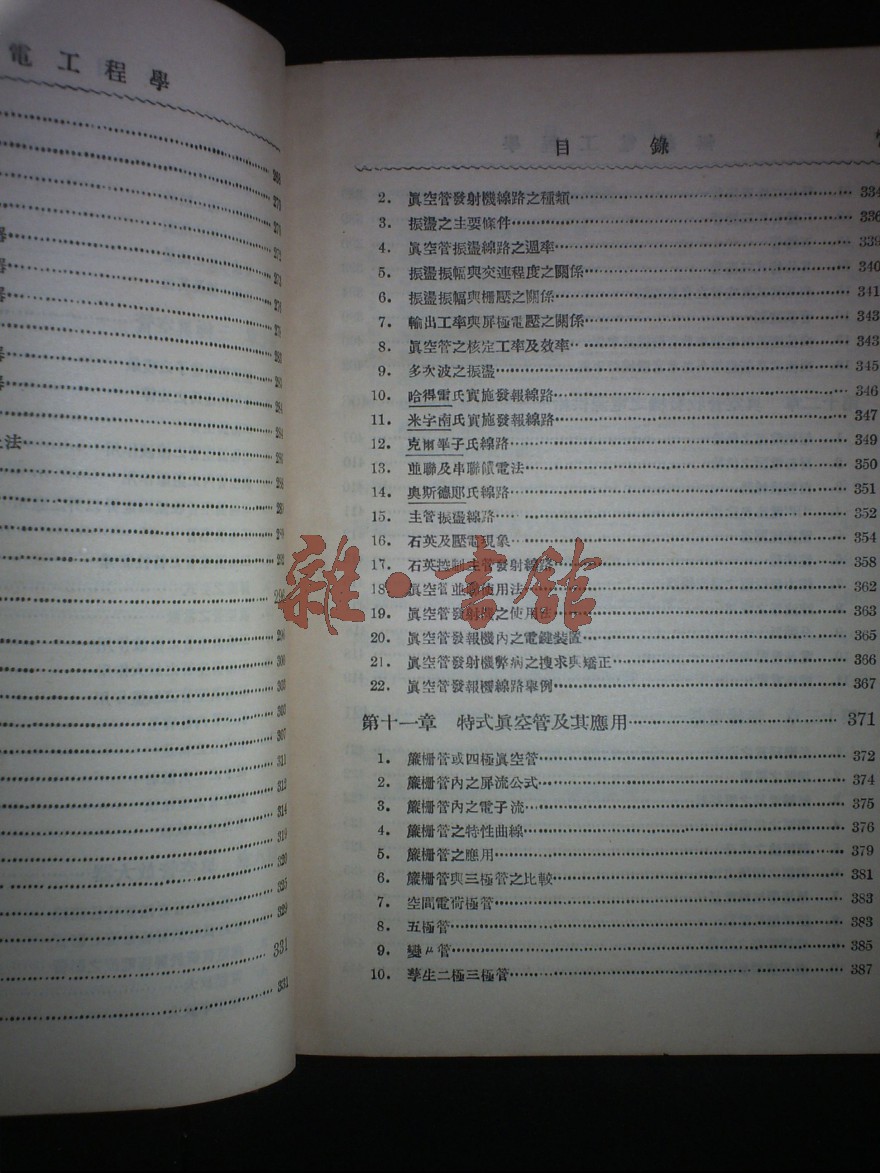 電工程學
268
270
270
272
273
274
275
282
283
284
284
法
300
303
303
307
311
312
314
319
320
325
329
331
331
目錄
2. 眞空管發射機線路之種類 334
3. 振盪之主要條件 336
4. 眞空管振盪線路之週率 339
5. 振盪振幅與交連程度之關係 340
6. 振盪振幅與柵壓之關係 341
7. 輸出工率與屏極電壓之關係 343
8. 眞空管之核定工率及效率 343
9. 多次波之振盪 345
10. 哈得雷氏實施發報線路 346
11. 米字南氏實施發報線路 347
12. 克爾畢子氏線路 349
13. 並聯及串聯饋電法 350
14. 奧斯德耶氏線路 351
15. 主管振盪線路 352
16. 石英及壓電現象 354
17. 石英控制主管發射線路 358
18. 眞空管並聯使用法 362
19. 眞空管發射機之使用法 363
20. 眞空管發報機內之電鍵裝置 365
21. 眞空管發射機弊病之搜求與矯正 366
22. 眞空管發報機線路舉例 367
第十一章 特式眞空管及其應用 371
1. 簾柵管或四極眞空管 372
2. 簾柵管內之屏流公式 374
3. 簾柵管內之電子流 375
4. 簾柵管之特性曲線 376
5. 簾柵管之應用 379
6. 簾柵管與三極管之比較 381
7. 空間電荷極管 383
8. 五極管 383
9. 變μ管 385
10. 孿生二極三極管 387
雜·書館